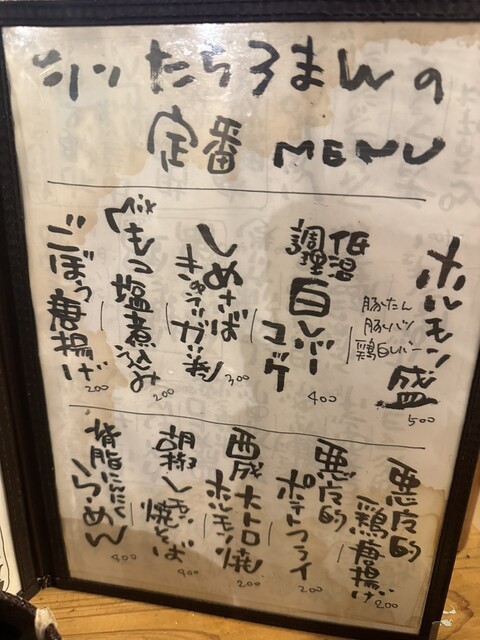 たらろまんの
定番 MENU
ホルモン盛
豚たん
豚ハツ
鶏白レバー
500
低温
調理
白レバー
コンケ
400
しめさば
きゅうりガリ巻
300
Mixもつ塩煮込み
200
ごぼう唐揚げ
200
悪魔的
鶏唐揚げ
200
悪魔的
ポテトフライ
200
大トロ
ホルモン焼
200
レモン
焼そば
400
背脂にんにく
らーめん
400